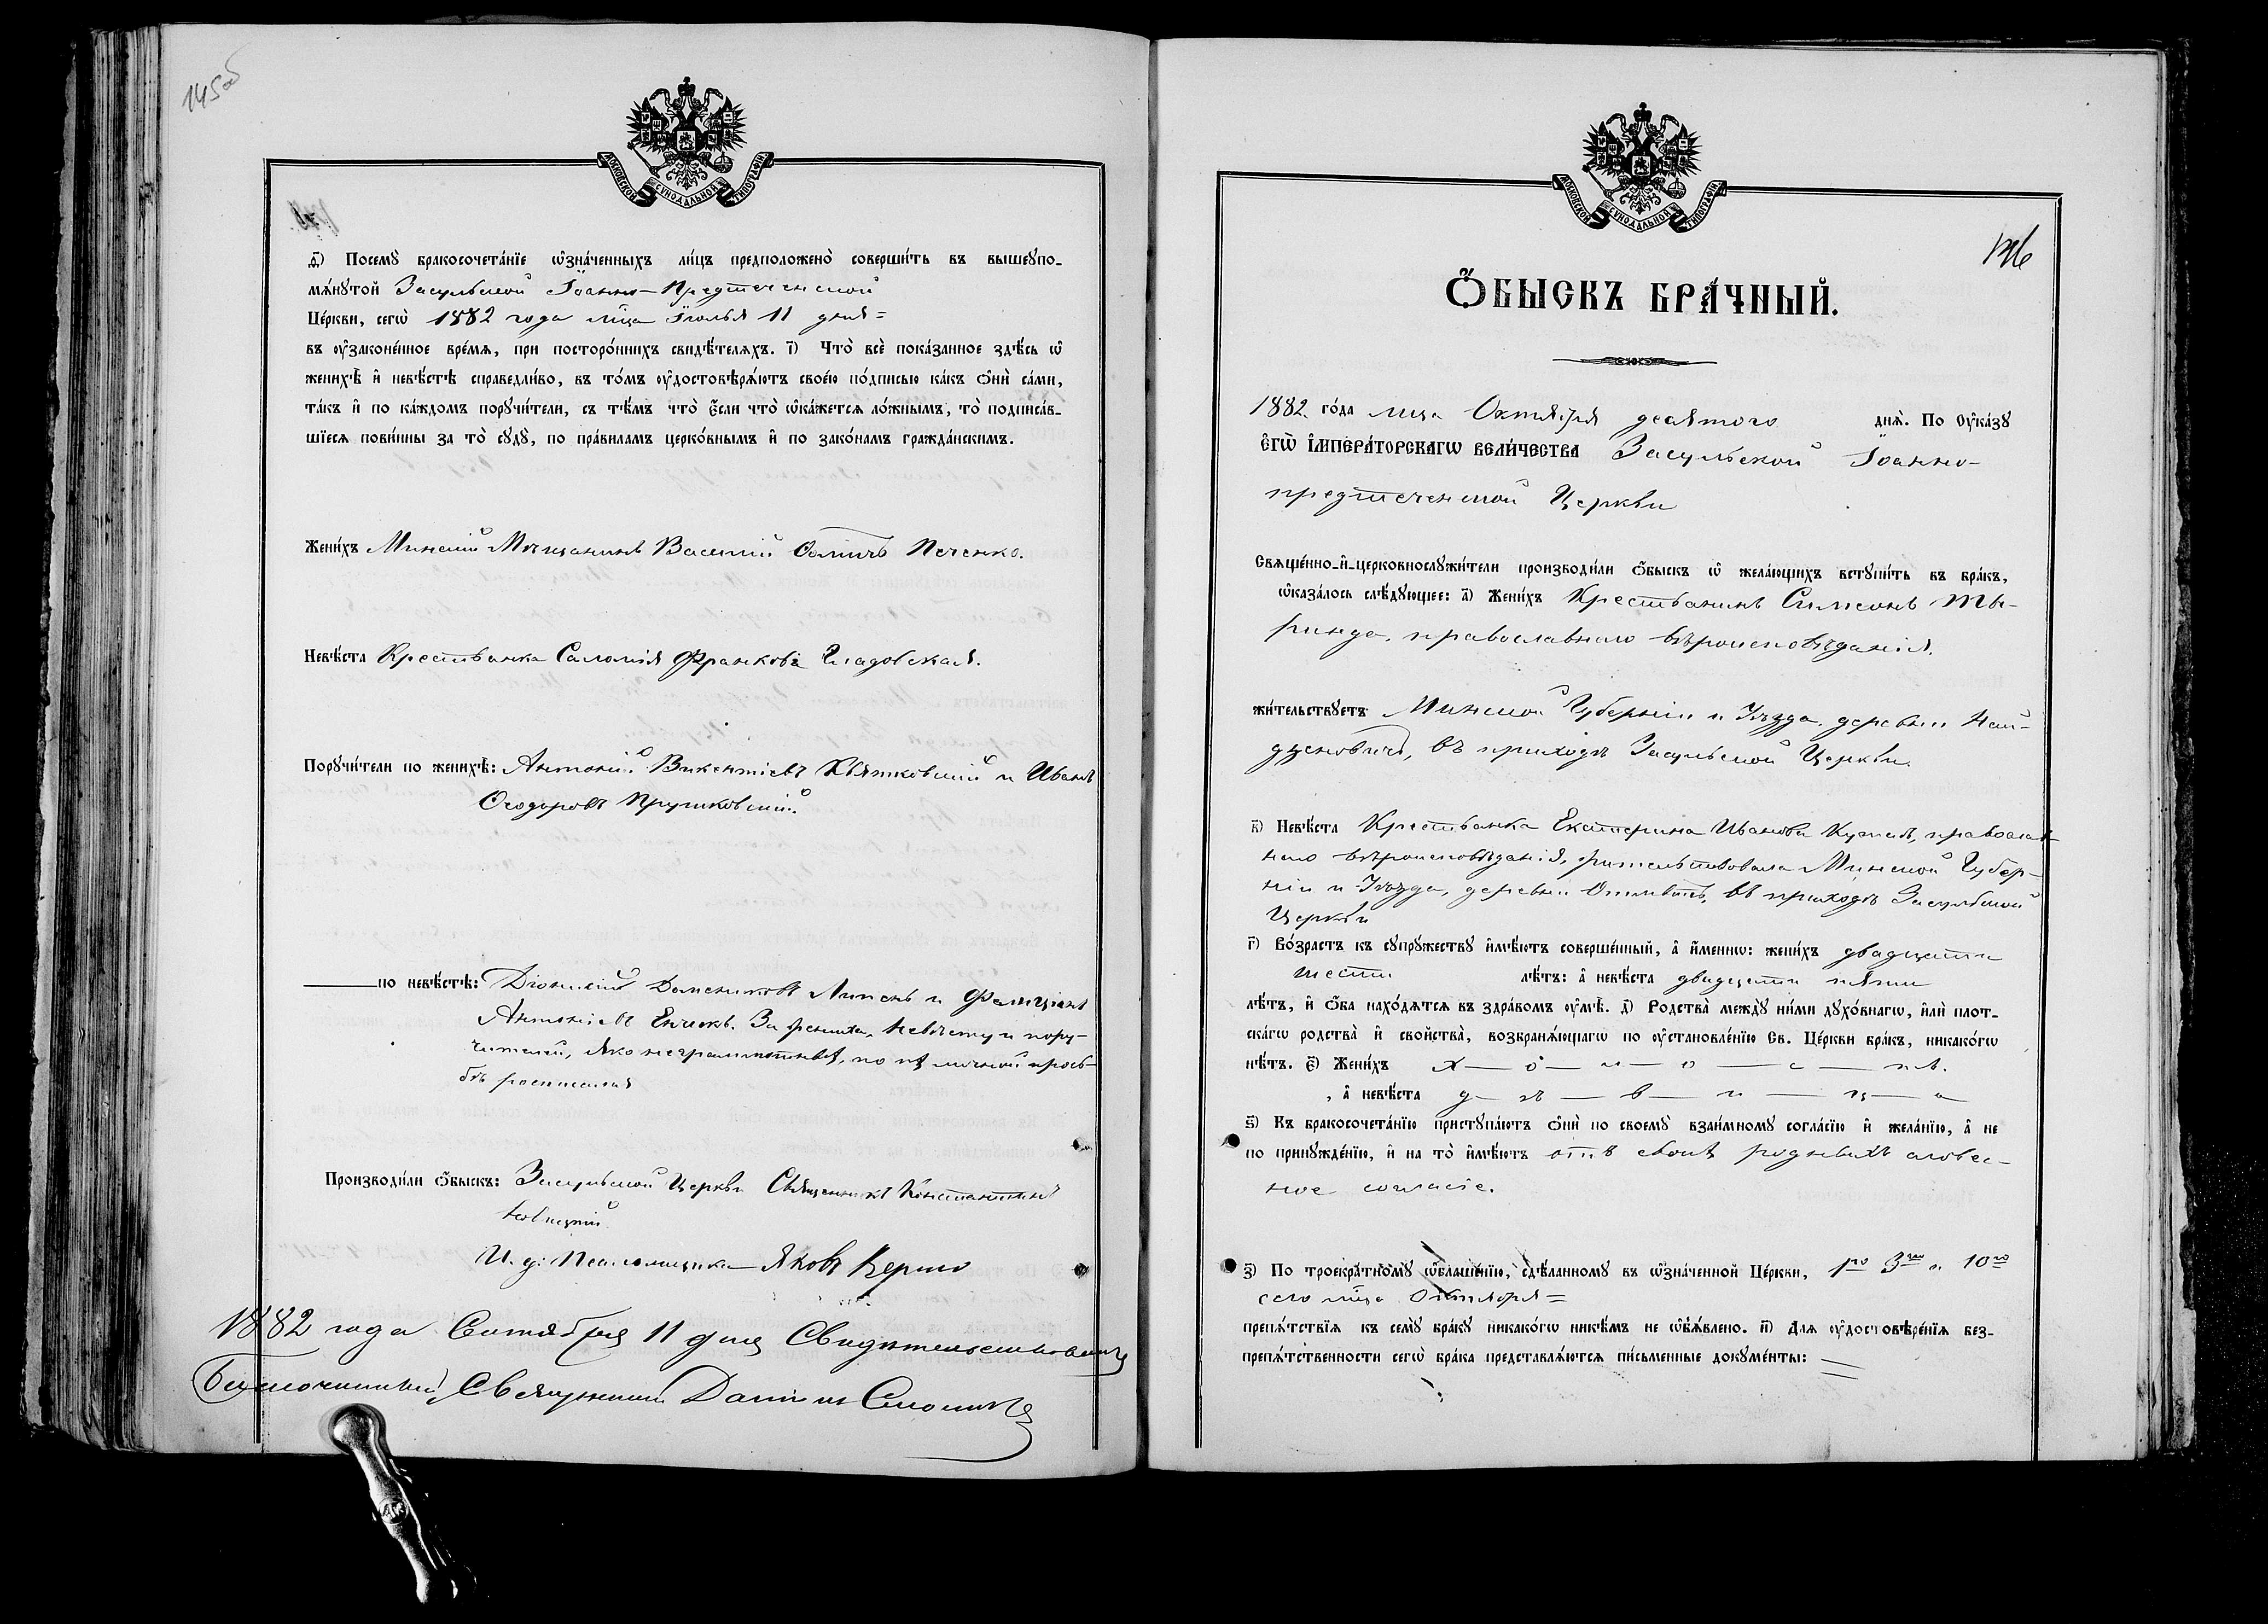 145об
МОСКОВСКОЙ СѴНОДАЛЬНОЙ ТИПОГРАФІИ
д҃і) Посемꙋ̀ бракосочета́нїе ѡ҆зна́ченныхъ ли́цъ предположено̀ соверши́ть въ вышеꙋпо-
мѧ́нꙋтой Засульской Іоанно-Предтеченской
Це́ркви, сегѡ̀ 1882 года м-ца Іюлья 11 дня =
въ ᲂу҆законе́нное вре́мѧ, при посторо́ннихъ свидѣ́телѧхъ. і҃) Что̀ всѐ пока́занное здѣ́сь ѡ҆
женихѣ̀ и҆ невѣ́стѣ справедли́во, въ то́мъ ᲂу҆достовѣрѧ́ютъ свое́ю по́дписью ка́къ ѻ҆нѝ са́ми,
та́къ и҆ по ка́ждомъ порꙋчи́тели, съ тѣ́мъ что̀ є҆́сли что̀ ѡ҆ка́жется ло́жнымъ, то̀ подписа́в-
шїеся пови́нны за то̀ сꙋдꙋ̀, по пра́виламъ церко́внымъ и҆ по зако́намъ гражда́нскимъ.
Жени́хъ Минскій Мѣщанинъ Василій Ѳомичъ Печенко.
Невѣ́ста Крестьянка Саломія Франкова
Порꙋчи́тели по женихѣ̀: Антоній Викентіевъ Квятковскій и Иванъ
Ѳеодоровъ Прушковскій.
по невѣ́стѣ: Діонисій Доминиковъ Липень и Фелиціянъ
Антоніевъ За жениха, невѣсту и пору-
чителей, яко неграмотныхъ, по ихъ личной прось-
бѣ росписался
Производи́ли ѻ҆́быскъ: Засульской Церкви Священникъ Константинъ
И. д. Псаломщика Яковъ
1882 года Сентября 11 дня Свидѣтельствовалъ
Благочинный, Священникъ
146
МОСКОВСКОЙ СѴНОДАЛЬНОЙ ТИПОГРАФІИ
Ѻ҆́БЫСКЪ БРА́ЧНЫЙ.
1882 го́да м-ца Октября десятого днѧ̀. По Оу҆ка́зꙋ
Є҆ГѠ̀ И҆МПЕРА́ТОРСКАГѠ ВЕЛИ́ЧЕСТВА Засульской Іоанно-
предтеченской Церкви
Свѧще́нно-и҆-церковнослꙋжи́тели производи́ли ѻ҆́быскъ ѡ҆ жела́ющихъ вступи́ть въ бра́къ,
ѡ҆каза́лось слѣ́дꙋющее: а҃) Жени́хъ Крестьянинъ Симеонъ
православнаго вѣроисповѣданія.
жи́тельствꙋетъ Минской Губерніи и Уѣзда, деревни Най-
въ приходѣ Засульской Церкви.
в҃) Невѣ́ста Крестьянка Екатерина Иванова православ-
наго вѣроисповѣданія, жительствовала Минской Губер-
ніи и Уѣзда, деревни въ приходѣ Засульской
Церкви
г҃) Во́зрастъ къ сꙋпрꙋ́жествꙋ и҆мѣ́ютъ соверше́нный, а҆ и҆́меннѡ: жени́хъ двадцати
шести лѣ́тъ: а҆ невѣ́ста двадцати пяти
лѣ́тъ, и҆ ѻ҆́ба нахо́дятся въ здра́вомъ ᲂу҆мѣ̀. д҃) Родства̀ междꙋ̀ ни́ми дꙋхо́внагѡ, и҆лѝ плот-
ска́гѡ родства̀ и҆ сво́йства, возбранѧ́ющагѡ по ᲂу҆становле́нїю Св. Це́ркви бра́къ, никако́гѡ
нѣ́тъ. є҃) Жени́хъ х — о — л — о — с — тъ.
, а҆ невѣ́ста д — ѣ — в — и — ц — а
ѕ҃) Къ бракосочета́нїю пристꙋпа́ютъ ѻ҆нѝ по своемꙋ̀ взаи́мномꙋ согла́сїю и҆ жела́нїю, а҆ не
по принꙋжде́нїю, и҆ на то̀ и҆мѣ́ютъ отъ своихъ родныхъ словес-
ное согласіе.
з҃) По троекра́тномꙋ ѡ҆глаше́нїю, сдѣ́ланномꙋ въ ѡ҆зна́ченной Це́ркви, 1го 3го и 10го
сего м-ца Октября =
препѧ́тствїя къ семꙋ̀ бра́кꙋ никако́гѡ никѣ́мъ не ѡ҆б̾ѧ́влено. и҃) Для ᲂу҆достовѣре́нїя без-
препѧ́тственности сегѡ̀ бра́ка представлѧ́ются пи́сьменные докꙋме́нты: —